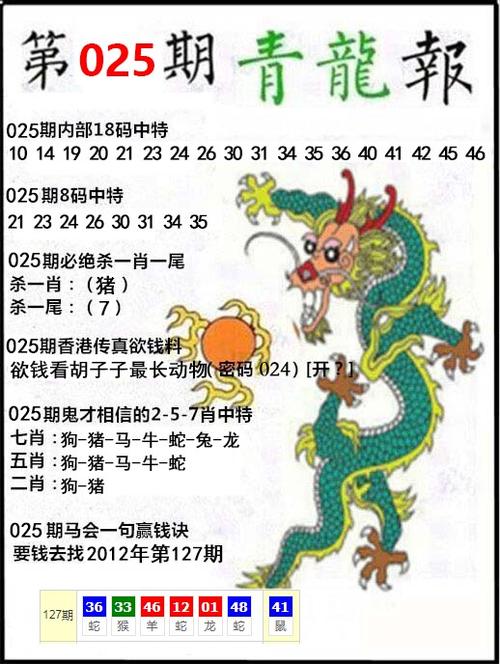 第025期青龍報
025期内部18码中特
10 14 19 20 21 23 24 26 30 31 34 35 36 40 41 42 45 46
025期8码中特
21 23 24 26 30 31 34 35
025期必绝杀一肖一尾
杀一肖:(猪)
杀一尾:(7)
025期香港传真欲钱料
欲钱看胡子子最长动物(密码024)[开?]
025期鬼才相信的2-5-7肖中特
七肖:狗-猪-马-牛-蛇-兔-龙
五肖:狗-猪-马-牛-蛇
二肖:狗-猪
025期马会一句赢钱诀
要钱去找2012年第127期
127期 36 33 46 12 01 48 41
蛇 猴 羊 蛇 龙 蛇 鼠